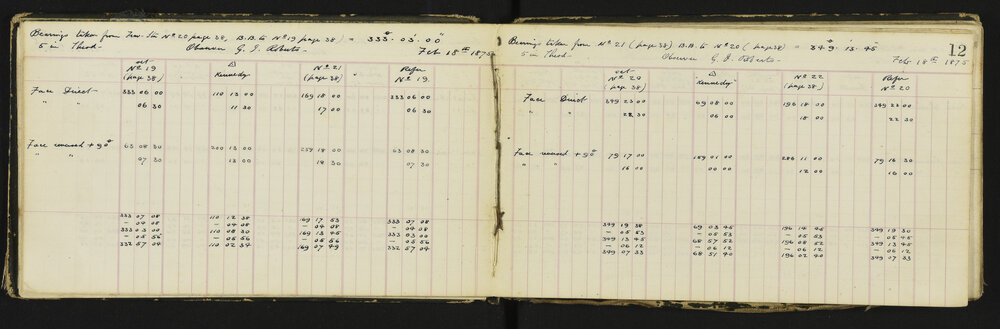 Bearings taken from Trav. Stn No 20 page 38, B.B. to No 19 page 38) = 333° 03' 00"
5 in Theod. Observer G. J. Roberts - Feb 18th 1875
Nº 19 Δ Nº 21 Refer
(page 38) Kennedy (page 38) Nº 19.
Face Direct 333 06 00 110 13 00 169 18 00 333 06 00
" " 06 30 11 30 17 00 06 30
Face reversed + 90° 63 08 30 200 13 00 259 18 00 63 08 30
" " 07 30 13 00 18 30 07 30
333 07 08 110 12 38 169 17 53 333 07 08
- 04 08 - 04 08 - 04 08 - 04 08
333 03 00 110 08 30 169 13 45 333 03 00
- 05 56 - 05 56 - 05 56 - 05 56
332 57 04 110 02 34 169 07 49 332 57 04
12
Bearings taken from Nº 21 (page 38) B.B. to Nº 20 (page 38) = 349° 13 45
5 in Theod. Observer G. J. Roberts - Feb 18th 1875
Nº 20 Δ Nº 22 Refer
(page 38) Kennedy (page 38) Nº 20
Face Direct 349 23 00 69 08 00 196 18 00 349 23 00
" " 22 30 06 00 18 00 22 30
Face reversed + 90° 79 17 00 159 01 40 286 11 00 79 16 30
" " 16 00 00 00 12 00 16 00
349 19 38 69 03 45 196 14 45 349 19 30
- 05 53 - 05 53 - 05 53 - 05 45
349 13 45 68 57 52 196 08 52 349 13 45
- 06 12 - 06 12 - 06 12 - 06 12
349 07 33 68 51 40 196 02 40 349 07 33